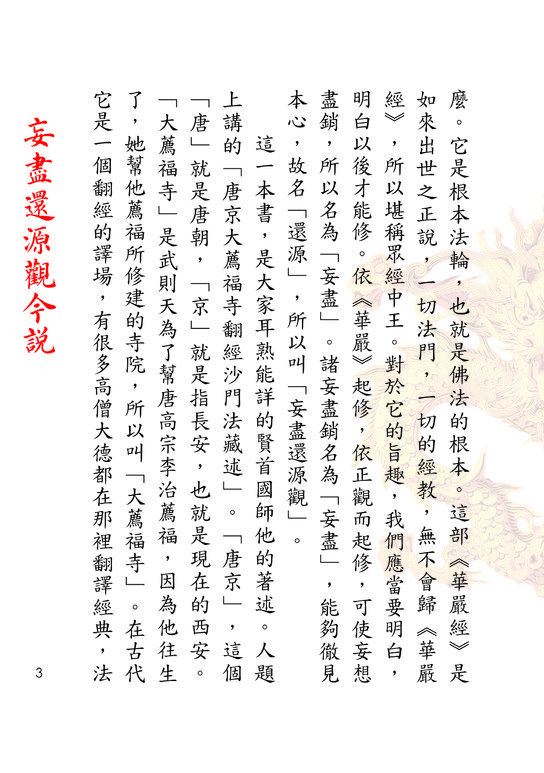 麼。它是根本法輪，也就是佛法的根本。這部《華嚴經》是
如來出世之正說，一切法門，一切的經教，無不會歸《華嚴
經》，所以堪稱眾經中王。對於它的旨趣，我們應當要明白，
明白以後才能修。依《華嚴》起修，依正觀而起修，可使妄想
盡銷，所以名為「妄盡」。諸妄盡銷名為「妄盡」，能夠徹見
本心，故名「還源」，所以叫「妄盡還源觀」。
這一本書，是大家耳熟能詳的賢首國師他的著述。人題
上講的「唐京大薦福寺翻經沙門法藏述」。「唐京」，這個
「唐」就是唐朝，「京」就是指長安，也就是現在的西安。
「大薦福寺」是武則天為了幫唐高宗李治薦福，因為他往生
了，她幫他薦福所修建的寺院，所以叫「大薦福寺」。在古代
它是一個翻經的譯場，有很多高僧大德都在那裡翻譯經典，法
妄盡還源觀今說
3